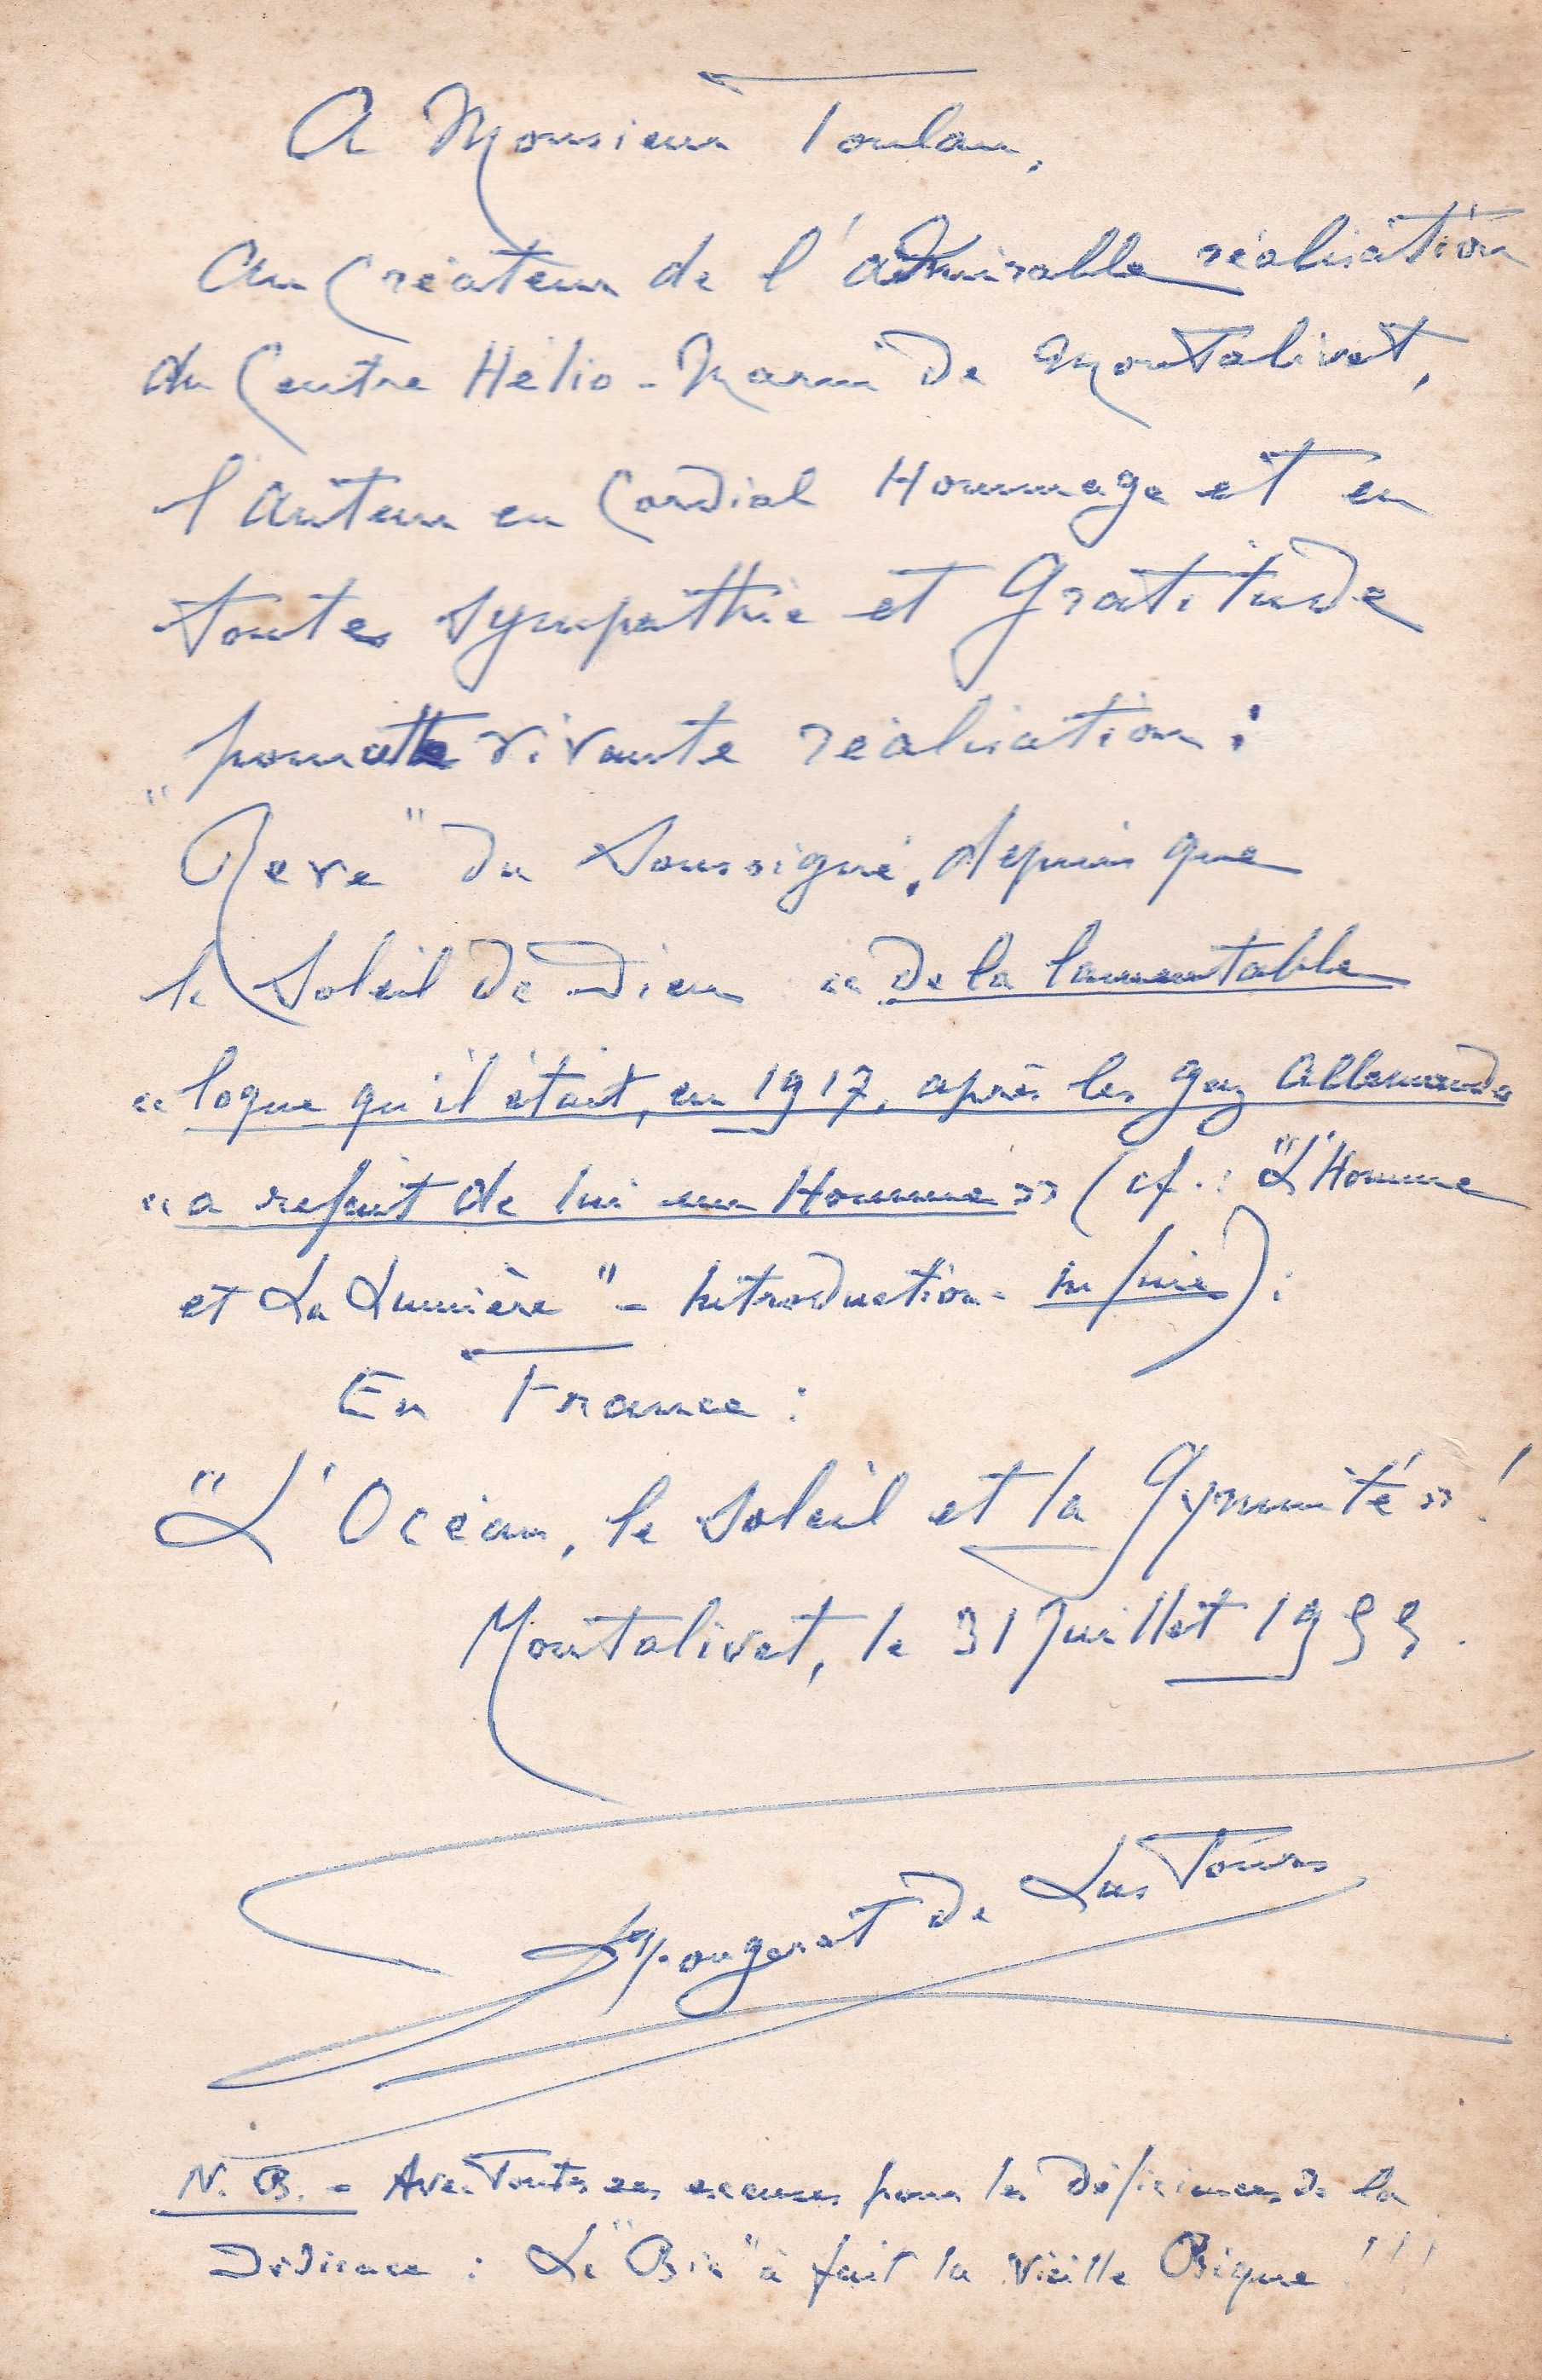 A Monsieur Toulau,
Au Créateur de l'admirable réalisation
du Centre Hélio-Marin de Montalivet,
l'auteur en Cordial Hommage et en
toutes sympathie et Gratitude
pour cette vivante réalisation :
"Reve" du soussigné, depuis que
le Soleil de Dieu « de la lamentable
« loque qu'il était, en 1917, après les gaz Allemands
« a refait de lui un Homme » (cf. : "L'Homme
et La Lumière" - Introduction - in fine) :
En France :
"L'Océan, le Soleil et la Gymnité » !
Montalivet, le 31 Juillet 1955.
Fougerat de Las Tours
N. B. - Avec Toutes ses excuses pour les déficiences de la
Dédicace : Le "Bic" à fait la vieille Bique !!!